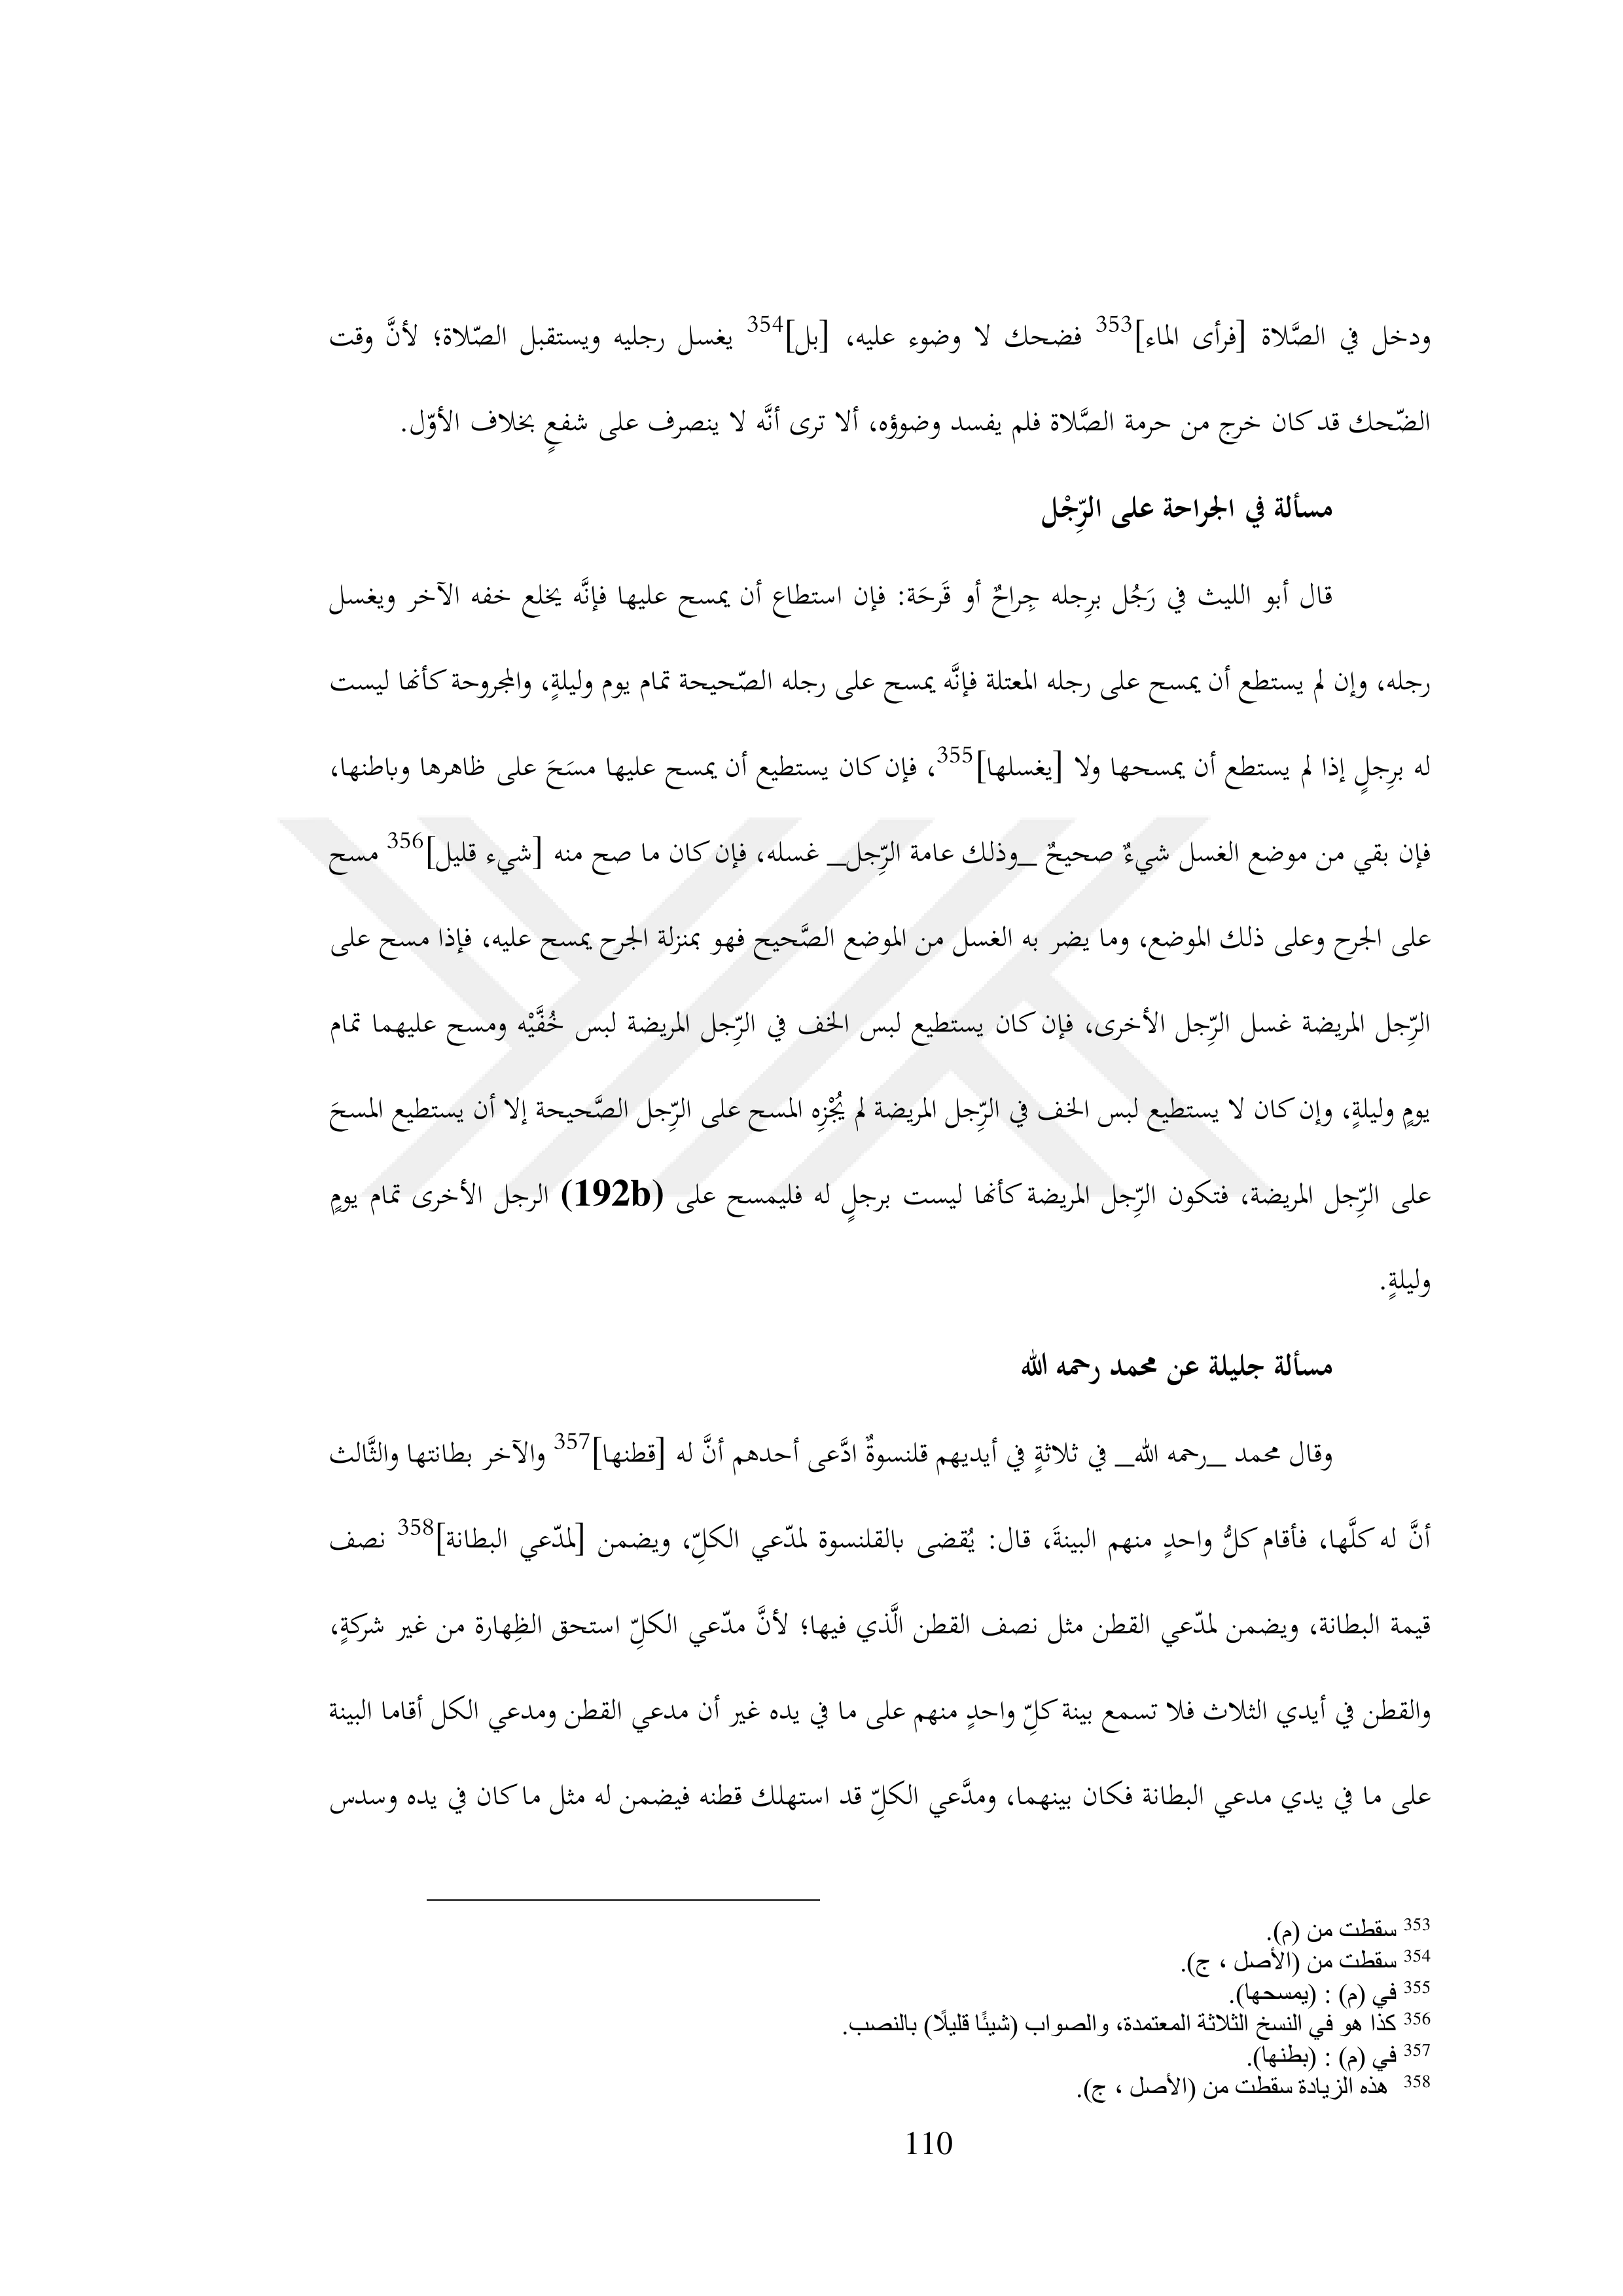 ودخل في الصَّلاة [فرأى الماء]353 فضحك لا وضوء عليه، [بل]354 يغسل رجليه ويستقبل الصّلاة؛ لأنَّ وقت
الضّحك قد كان خرج من حرمة الصَّلاة فلم يفسد وضوؤه، ألا ترى أنَّه لا ينصرف على شفعٍ بخلاف الأوّل.
مسألة في الجراحة على الرِّجْل
قال أبو الليث في رَجُل برِجله جِراحٌ أو قَرحَة: فإن استطاع أن يمسح عليها فإنَّه يخلع خفه الآخر ويغسل
رجله، وإن لم يستطع أن يمسح على رجله المعتلة فإنَّه يمسح على رجله الصّحيحة تمام يوم وليلةٍ، والمجروحة كأنها ليست
له برِجلٍ إذا لم يستطع أن يمسحها ولا [يغسلها]355، فإن كان يستطيع أن يمسح عليها مسَحَ على ظاهرها وباطنها،
فإن بقي من موضع الغسل شيءٌ صحيحٌ _وذلك عامة الرِّجل_ غسله، فإن كان ما صح منه [شيء قليل]356 مسح
على الجرح وعلى ذلك الموضع، وما يضر به الغسل من الموضع الصَّحيح فهو بمنزلة الجرح يمسح عليه، فإذا مسح على
الرِّجل المريضة غسل الرِّجل الأخرى، فإن كان يستطيع لبس الخف في الرِّجل المريضة لبس خُفَّيْه ومسح عليهما تمام
يومٍ وليلةٍ، وإن كان لا يستطيع لبس الخف في الرِّجل المريضة لم يُجْزِه المسح على الرِّجل الصَّحيحة إلا أن يستطيع المسحَ
على الرِّجل المريضة، فتكون الرِّجل المريضة كأنها ليست برجلٍ له فليمسح على (192b) الرجل الأخرى تمام يومٍ
وليلةٍ.
مسألة جليلة عن محمد رحمه الله
وقال محمد _رحمه الله_ في ثلاثةٍ في أيديهم قلنسوةٌ ادَّعى أحدهم أنَّ له [قطنها]357 والآخر بطانتها والثَّالث
أنَّ له كلَّها، فأقام كلُّ واحدٍ منهم البينةَ، قال: يُقضى بالقلنسوة لمدّعي الكلِّ، ويضمن [لمدّعي البطانة]358 نصف
قيمة البطانة، ويضمن لمدّعي القطن مثل نصف القطن الَّذي فيها؛ لأنَّ مدّعي الكلِّ استحق الظِهارة من غير شركةٍ،
والقطن في أيدي الثلاث فلا تسمع بينة كلِّ واحدٍ منهم على ما في يده غير أن مدعي القطن ومدعي الكل أقاما البينة
على ما في يدي مدعي البطانة فكان بينهما، ومدَّعي الكلِّ قد استهلك قطنه فيضمن له مثل ما كان في يده وسدس
353 سقطت من (م).
354 سقطت من (الأصل ، ج).
355 في (م) : (يمسحها).
356 كذا هو في النسخ الثلاثة المعتمدة، والصواب (شيئًا قليلًا) بالنصب.
357 في (م) : (بطنها).
358 هذه الزيادة سقطت من (الأصل ، ج).
110